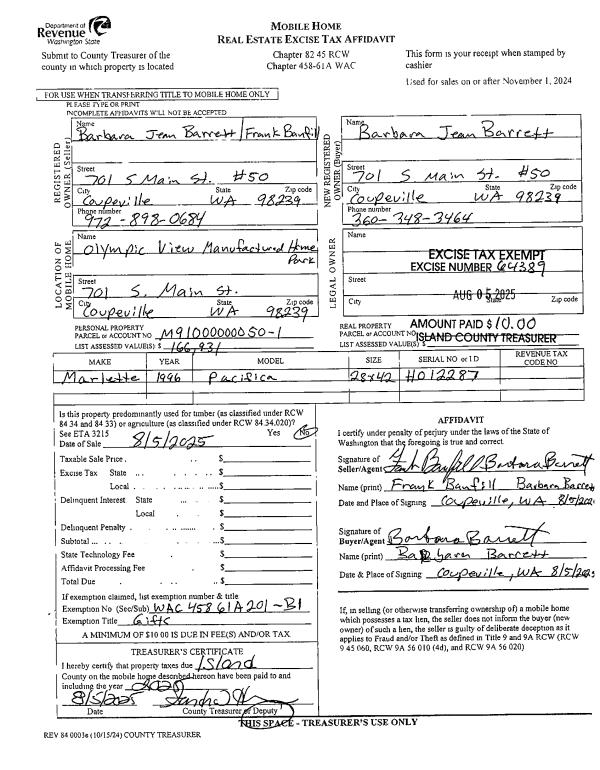 Department of
Revenue
Washington State
MOBILE HOME
REAL ESTATE EXCISE TAX AFFIDAVIT
Submit to County Treasurer of the
county in which property is located
Chapter 82 45 RCW
Chapter 458-61A WAC
This form is your receipt when stamped by
cashier
Used for sales on or after November 1, 2024
FOR USE WHEN TRANSFERRING TITLE TO MOBILE HOME ONLY
PLEASE TYPE OR PRINT
INCOMPLETE AFFIDAVITS WILL NOT BE ACCEPTED
REGISTERED
OWNER (Seller)
Name
Barbara Jean Barrett / Frank Banfill
Street
701 S Main St. #50
City State Zip code
Coupeville WA 98239
Phone number
972-898-0684
NEW REGISTERED
OWNER (Buyer)
Name
Barbara Jean Barrett
Street
701 S Main St. #50
City State Zip code
Coupeville WA 98239
Phone number
360-348-3464
LOCATION OF
MOBILE HOME
Name
Olympic View Manufactured Home
Park
Street
701 S. Main St.
City State Zip code
Coupeville WA 98239
LEGAL OWNER
Name
EXCISE TAX EXEMPT
EXCISE NUMBER 64389
Street
AUG 05 2025
City State Zip code
PERSONAL PROPERTY
PARCEL or ACCOUNT NO M9100000050-1
LIST ASSESSED VALUE(S) $ 166,931
REAL PROPERTY
PARCEL or ACCOUNT NO
LIST ASSESSED VALUE(S) $
AMOUNT PAID $10.00
ISLAND COUNTY TREASURER
MAKE YEAR MODEL SIZE SERIAL NO or I D REVENUE TAX
CODE NO
Marlette 1996 Pacifica 28x42 H012287
Is this property predominantly used for timber (as classified under RCW
84 34 and 84 33) or agriculture (as classified under RCW 84.34.020)?
See ETA 3215 Yes No
Date of Sale 8/5/2025
Taxable Sale Price $
Excise Tax State $
Local $
Delinquent Interest State $
Local $
Delinquent Penalty $
Subtotal $
State Technology Fee $
Affidavit Processing Fee $
Total Due $
If exemption claimed, list exemption number & title
Exemption No (Sec/Sub) WAC 458 61A 201 -B1
Exemption Title Gifts
A MINIMUM OF $10 00 IS DUE IN FEE(S) AND/OR TAX
TREASURER'S CERTIFICATE
I hereby certify that property taxes due Island
County on the mobile home described hereon have been paid to and
including the year
8/5/2025
Date County Treasurer or Deputy
AFFIDAVIT
I certify under penalty of perjury under the laws of the State of
Washington that the foregoing is true and correct
Signature of
Seller/Agent Frank Banfill Barbara Barrett
Name (print) Frank Banfill Barbara Barrett
Date and Place of Signing Coupeville, WA 8/5/202
Signature of
Buyer/Agent Barbara Barrett
Name (print) Barbara Barrett
Date & Place of Signing Coupeville, WA 8/5/202
If, in selling (or otherwise transferring ownership of) a mobile home
which possesses a tax lien, the seller does not inform the buyer (new
owner) of such a lien, the seller is guilty of deliberate deception as it
applies to Fraud and/or Theft as defined in Title 9 and 9A RCW (RCW
9 45 060, RCW 9A 56 010 (4d), and RCW 9A 56 020)
THIS SPACE - TREASURER'S USE ONLY
REV 84 0003e (10/15/24) COUNTY TREASURER